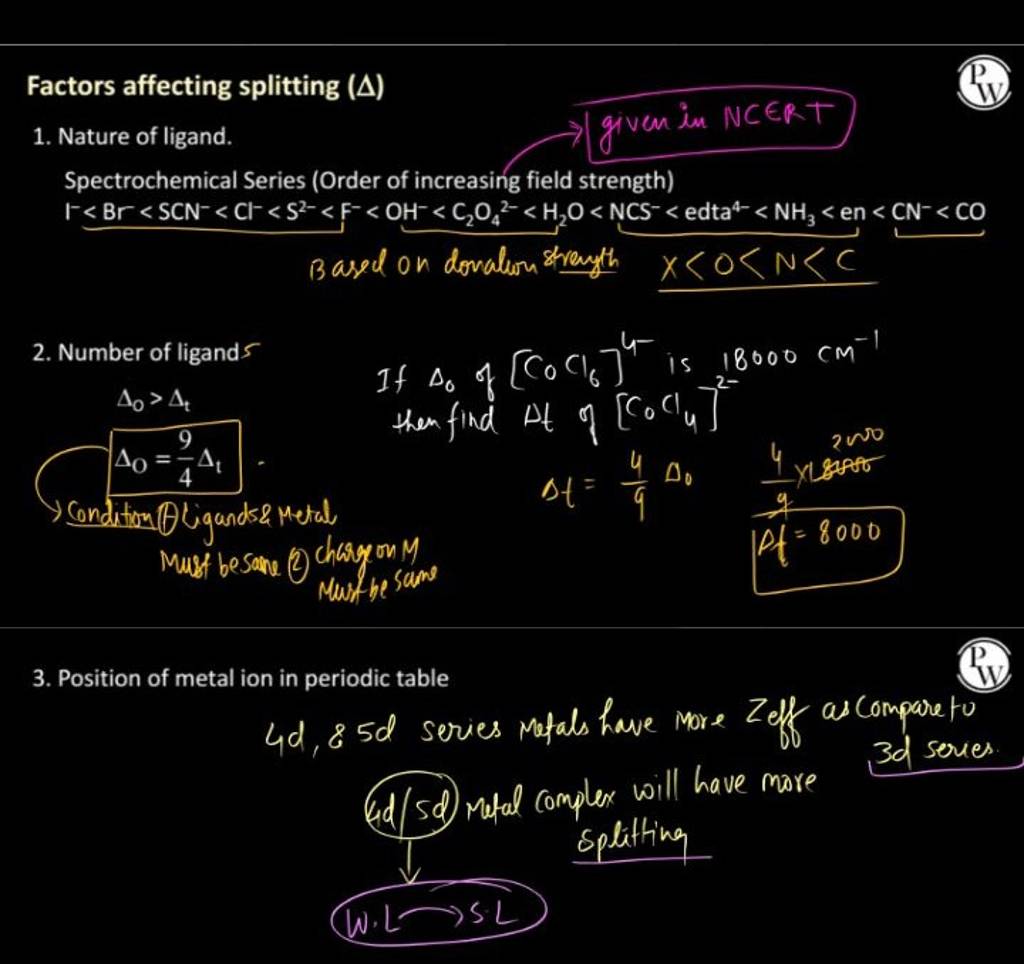 Factors affecting splitting (Δ)
PW
given in NCERT
1. Nature of ligand.
Spectrochemical Series (Order of increasing field strength)
I⁻ < Br⁻ < SCN⁻ < Cl⁻ < S²⁻ < F⁻ < OH⁻ < C₂O₄²⁻ < H₂O < NCS⁻ < edta⁴⁻ < NH₃ < en < CN⁻ < CO
Based on donation strength X < O < N < C
2. Number of ligands
If Δ₀ of [CoCl₆]⁴⁻ is 18000 cm⁻¹
then find Δt of [CoCl₄]²⁻
Δ₀ > Δₜ
Δ₀ = 9/4 Δₜ
Δt = 4/9 Δ₀
4/9 × 18000 2000
Δt = 8000
Condition ① Ligands & Metal
Must be same ② charge on M
Must be same
3. Position of metal ion in periodic table
PW
4d, & 5d series Metals have More Zeff as compare to
3d series.
4d/5d Metal complex will have more
splitting
W.L → S.L